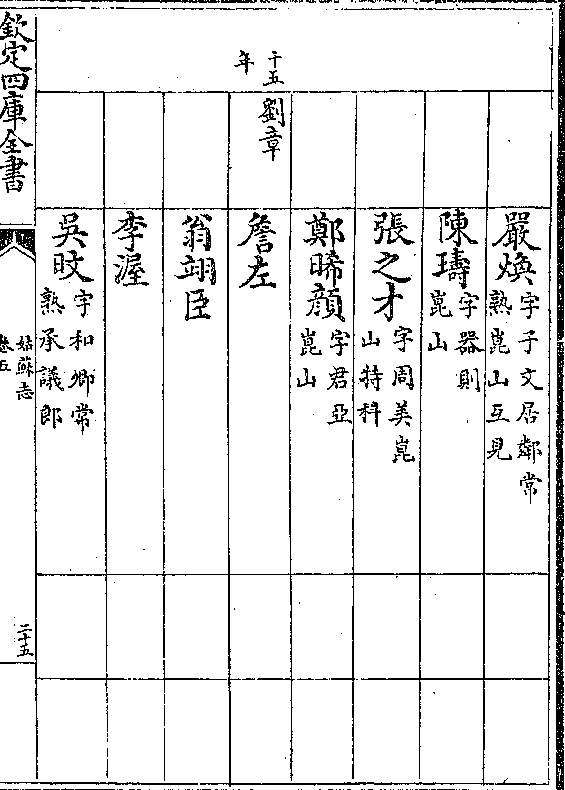 嚴煥字子文居鄰常
熟崑山互見
陳璹字器則
崑山
張之才字周美崑
山特科
鄭晞顔字君亞
崑山
十五
年
劉章
詹左
翁翊臣
李渥
吳旼字和卿常
熟承議郎
欽定四庫全書
姑蘇志
卷五
二十五